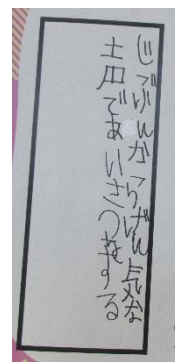 じぶんからげん気な
声であいさつをする